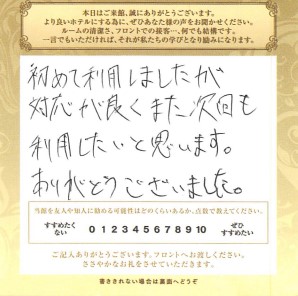 本日はご来館、誠にありがとうございます。
より良いホテルにする為に、ぜひあなた様の声をお聞かせください。
ルームの清潔さ、フロントでの接客…、何でも結構です。
一言でもいただければ、それが私たちの学びとなり励みになります。
初めて利用しましたが
対応が良くまた次回も
利用したいと思います。
ありがとうございました。
当館を友人や知人に勧める可能性はどのくらいあるか、点数で教えてください。
すすめたく
ない
0 1 2 3 4 5 6 7 8 9 10
ぜひ
すすめたい
ご記入ありがとうございます。フロントへお渡しください。
ささやかなお礼をさせていただきます。
書ききれない場合は裏面へどうぞ